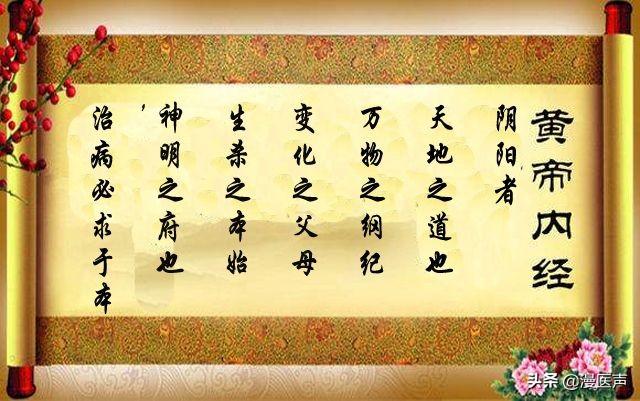 黄帝内经
阴阳者
天地之道也
万物之纲纪
变化之父母
生杀之本始
神明之府也，
治病必求于本
头条 @漫医声